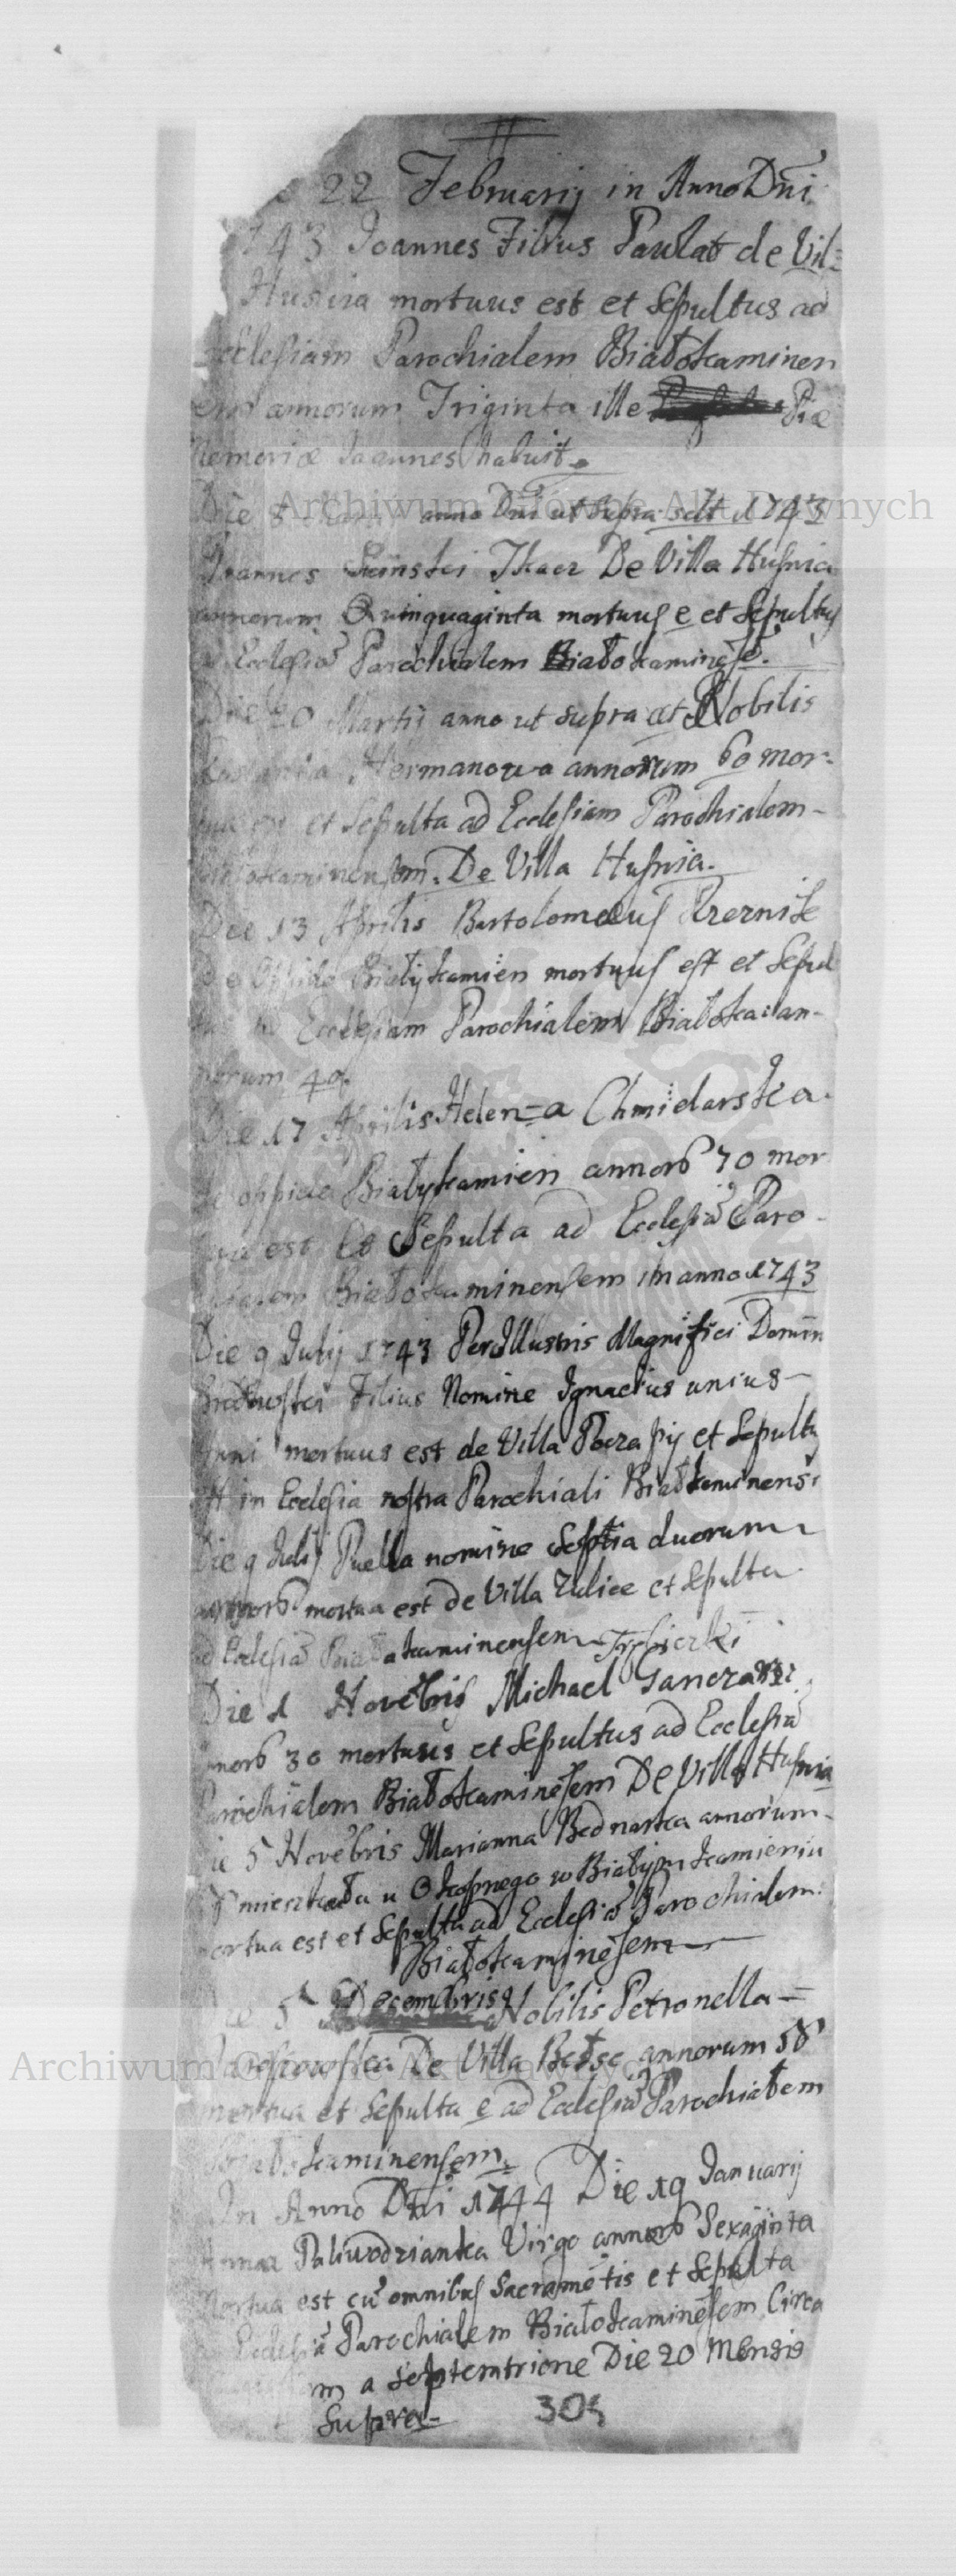 22 Februarij in Anno Dni
743 Joannes Filius Pawlat de Vil=
Husnia mortuus est et Sepultus ad
Ecclesiam Parochialem Białokaminen
annorum Triginta ille Piæ
Memoriæ Joannes habuit
Die anno Dni ut Supra 1743
Joannes Tkacz De Villa Husnia
annorum Quinquaginta mortuus e et Sepultus
Ecclesiã Parochialem Białokaminẽsẽ.
Die 20 Martij anno ut supra Nobilis
Hermanowa annorum 60 mor-
et Sepulta ad Ecclesiam Parochialem-
De Villa Husnia.
Die 13 Aprilis Bartolomæus
De Oppido Białykamien mortuus est et Sepul
Ecclesiam Parochialem Białoka: an-
norum 40
Die 17 Aprilis Helen=a Chmielarska.
de oppido Białykamien annorũ 70 mor
tua est Et Sepulta ad Ecclesiã Paro-
Białokaminensem in anno 1743
Die 9 Julij 1743 PerIllustris Magnifici Domin
Filius Nomine Ignacius unius-
Anni mortuus est de Villa Poczapy et Sepultus
est in Ecclesia nostra Parochiali Białkaminensi
Die 9 Julij Puella nomine duorum
mortua est de Villa Zulice et Sepulta
ad Ecclesiã Białakaminensem
Die 1 Novẽbris Michael Ganczarz
annorũ 30 mortuus et Sepultus ad Ecclesiã
Parochialem Białokaminẽsem De Villa Husnia
Die 5 Novẽbris Marianna Bednarka annorum-
mieszkała u Okopnego w Białym kamieniu
mortua est et Sepulta ad Ecclesiã Parochialem
Białokaminẽsem
Die 5 Decembris Nobilis Petronella=
De Villa Bełzec annorum 58
mortua et Sepulta e ad Ecclesiã Parochialem
Białokaminensem.
In Anno Dni 1744 Die 19 Januarij
Anna Paliwodzianka Virgo annorũ Sexaginta
Mortua est cũ omnibus Sacramẽtis et Sepulta
ad Ecclesiã Parochialem Białokaminẽsem Circa
a Septemtrione Die 20 Mensis
Supra-
305
Archiwum Główne Akt Dawnych
Archiwum Główne Akt Dawnych